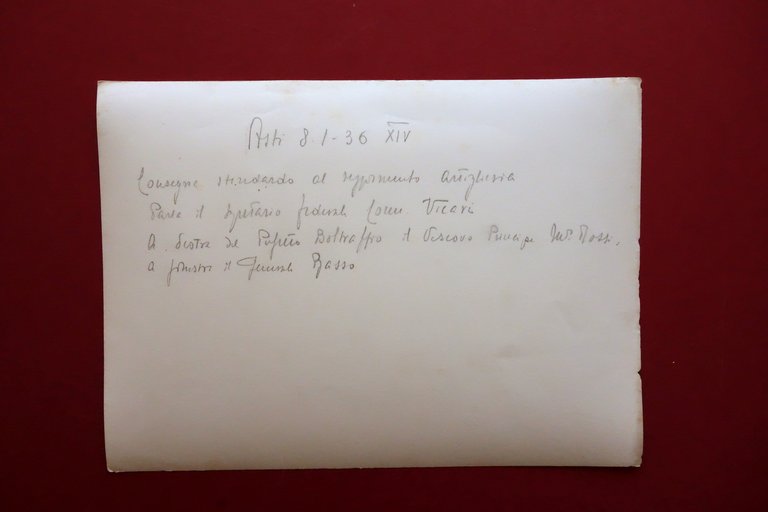 Asti 8.1-36 XIV
Consegna stendardo al reggimento Artiglieria
Parla il Segretario federale Comm. Vicari
A destra del Prefetto Boltraffio il Vescovo Principe Rossi.
a sinistra il Generale Basso